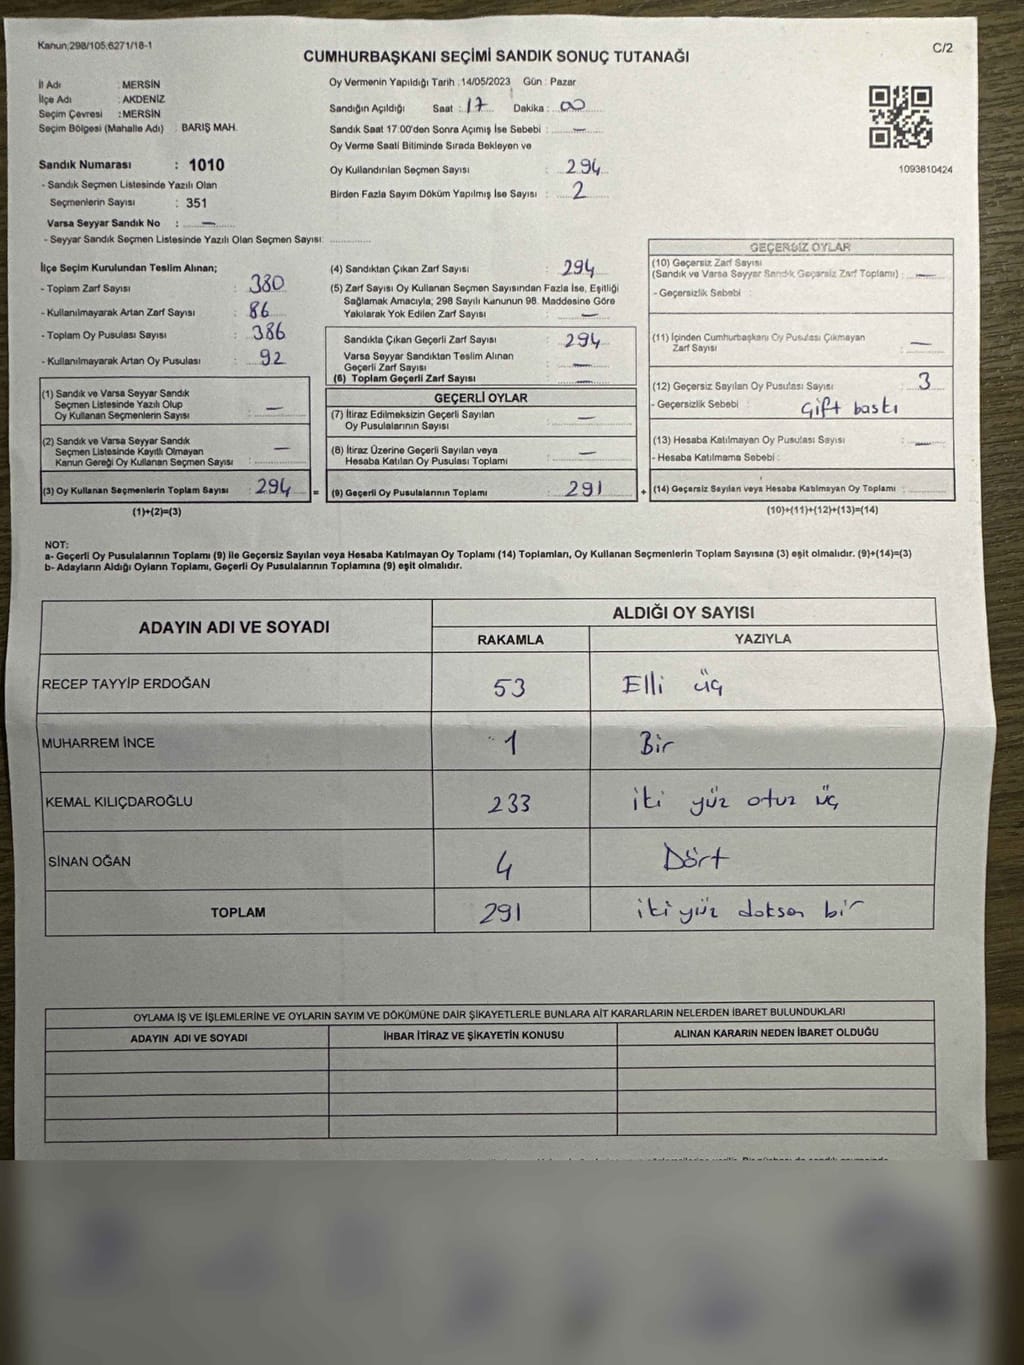 Kanun;298/105;6271/18-1
CUMHURBAŞKANI SEÇİMİ SANDIK SONUÇ TUTANAĞI
C/2
İl Adı : MERSİN
İlçe Adı : AKDENİZ
Seçim Çevresi : MERSİN
Seçim Bölgesi (Mahalle Adı) : BARIŞ MAH.
Sandık Numarası : 1010
- Sandık Seçmen Listesinde Yazılı Olan
Seçmenlerin Sayısı : 351
Varsa Seyyar Sandık No : —
- Seyyar Sandık Seçmen Listesinde Yazılı Olan Seçmen Sayısı:
Oy Vermenin Yapıldığı Tarih : 14/05/2023 Gün : Pazar
Sandığın Açıldığı Saat : 17 Dakika : 00
Sandık Saat 17:00'den Sonra Açımış İse Sebebi : —
Oy Verme Saati Bitiminde Sırada Bekleyen ve
Oy Kullandırılan Seçmen Sayısı : 294
Birden Fazla Sayım Döküm Yapılmış İse Sayısı : 2
1093610424
İlçe Seçim Kurulundan Teslim Alınan;
- Toplam Zarf Sayısı : 380
- Kullanılmayarak Artan Zarf Sayısı : 86
- Toplam Oy Pusulası Sayısı : 386
- Kullanılmayarak Artan Oy Pusulası : 92
(1) Sandık ve Varsa Seyyar Sandık
Seçmen Listesinde Yazılı Olup
Oy Kullanan Seçmenlerin Sayısı : —
(2) Sandık ve Varsa Seyyar Sandık
Seçmen Listesinde Kayıtlı Olmayan
Kanun Gereği Oy Kullanan Seçmen Sayısı : —
(3) Oy Kullanan Seçmenlerin Toplam Sayısı 294 =
(1)+(2)=(3)
(4) Sandıktan Çıkan Zarf Sayısı : 294
(5) Zarf Sayısı Oy Kullanan Seçmen Sayısından Fazla İse, Eşitliği
Sağlamak Amacıyla; 298 Sayılı Kanunun 98. Maddesine Göre
Yakılarak Yok Edilen Zarf Sayısı : —
Sandıkta Çıkan Geçerli Zarf Sayısı : 294
Varsa Seyyar Sandıktan Teslim Alınan
Geçerli Zarf Sayısı : —
(6) Toplam Geçerli Zarf Sayısı : —
GEÇERLİ OYLAR
(7) İtiraz Edilmeksizin Geçerli Sayılan
Oy Pusulalarının Sayısı : —
(8) İtiraz Üzerine Geçerli Sayılan veya
Hesaba Katılan Oy Pusulası Toplamı : —
(9) Geçerli Oy Pusulalarının Toplamı : 291 +
GEÇERSİZ OYLAR
(10) Geçersiz Zarf Sayısı
(Sandık ve Varsa Seyyar Sandık Geçersiz Zarf Toplamı) : —
- Geçersizlik Sebebi :
(11) İçinden Cumhurbaşkanı Oy Pusulası Çıkmayan
Zarf Sayısı : —
(12) Geçersiz Sayılan Oy Pusulası Sayısı : 3
- Geçersizlik Sebebi : Çift baskı
(13) Hesaba Katılmayan Oy Pusulası Sayısı : —
- Hesaba Katılmama Sebebi :
(14) Geçersiz Sayılan veya Hesaba Katılmayan Oy Toplamı :
(10)+(11)+(12)+(13)=(14)
NOT:
a- Geçerli Oy Pusulalarının Toplamı (9) ile Geçersiz Sayılan veya Hesaba Katılmayan Oy Toplamı (14) Toplamları, Oy Kullanan Seçmenlerin Toplam Sayısına (3) eşit olmalıdır. (9)+(14)=(3)
b- Adayların Aldığı Oyların Toplamı, Geçerli Oy Pusulalarının Toplamına (9) eşit olmalıdır.
ADAYIN ADI VE SOYADI
ALDIĞI OY SAYISI
RAKAMLA YAZIYLA
RECEP TAYYİP ERDOĞAN 53 Elli üç
MUHARREM İNCE 1 Bir
KEMAL KILIÇDAROĞLU 233 iki yüz otuz üç
SİNAN OĞAN 4 Dört
TOPLAM 291 iki yüz doksan bir
OYLAMA İŞ VE İŞLEMLERİNE VE OYLARIN SAYIM VE DÖKÜMÜNE DAİR ŞİKAYETLERLE BUNLARA AİT KARARLARIN NELERDEN İBARET BULUNDUKLARI
ADAYIN ADI VE SOYADI İHBAR İTİRAZ VE ŞİKAYETİN KONUSU ALINAN KARARIN NEDEN İBARET OLDUĞU